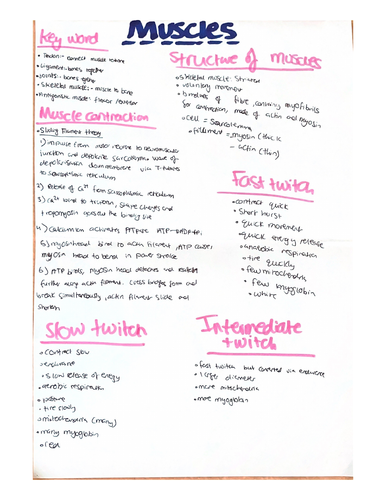 Muscles
Key word
• Tendon:- connect muscle to bone
• Ligaments:- bones together
• Joints:- bones together
• Skeletal muscles:- muscle to bone
• Antagonistic muscle: flexor
Muscle contraction
• Sliding filament theory
1) Impulse from motor neurone to neuromuscular
junction and depolarise sarcolemma. Wave of
depolarisation down membrane via T-tubules
to sarcoplasmic reticulum
2) Release of Ca²⁺ from sarcoplasmic reticulum
3) Ca²⁺ bind to troponin, shape changes and
tropomyosin exposes the binding site
4) Calcium ion activates ATPase ATP→ADP+Pi
5) myosin head bind to actin filament, ATP causes
myosin head to bend in power stroke
6) ATP binds, myosin head detaches and
further along actin filament. Cross bridges form and
break simultaneously, actin filament slide and
shorten
Structure of muscles
• Skeletal muscle: Striated
• voluntary movement
• bundles of fibre, containing myofibrils
for contraction, made of actin and myosin
• cell = Sarcolemma
• filament = myosin (thick)
- actin (thin)
Fast twitch
• contract quick
• Short burst
• quick movement
• quick energy release
• anaerobic respiration
• tire quickly
• few mitochondria
• few myoglobin
• white
Slow twitch
• contract slow
• endurance
• slow release of energy
• aerobic respiration
• posture
• tire slowly
• mitochondria (many)
• many myoglobin
• red
Intermediate
twitch
• fast twitch but converted via endurance
• larger diameter
• more mitochondria
• more myoglobin